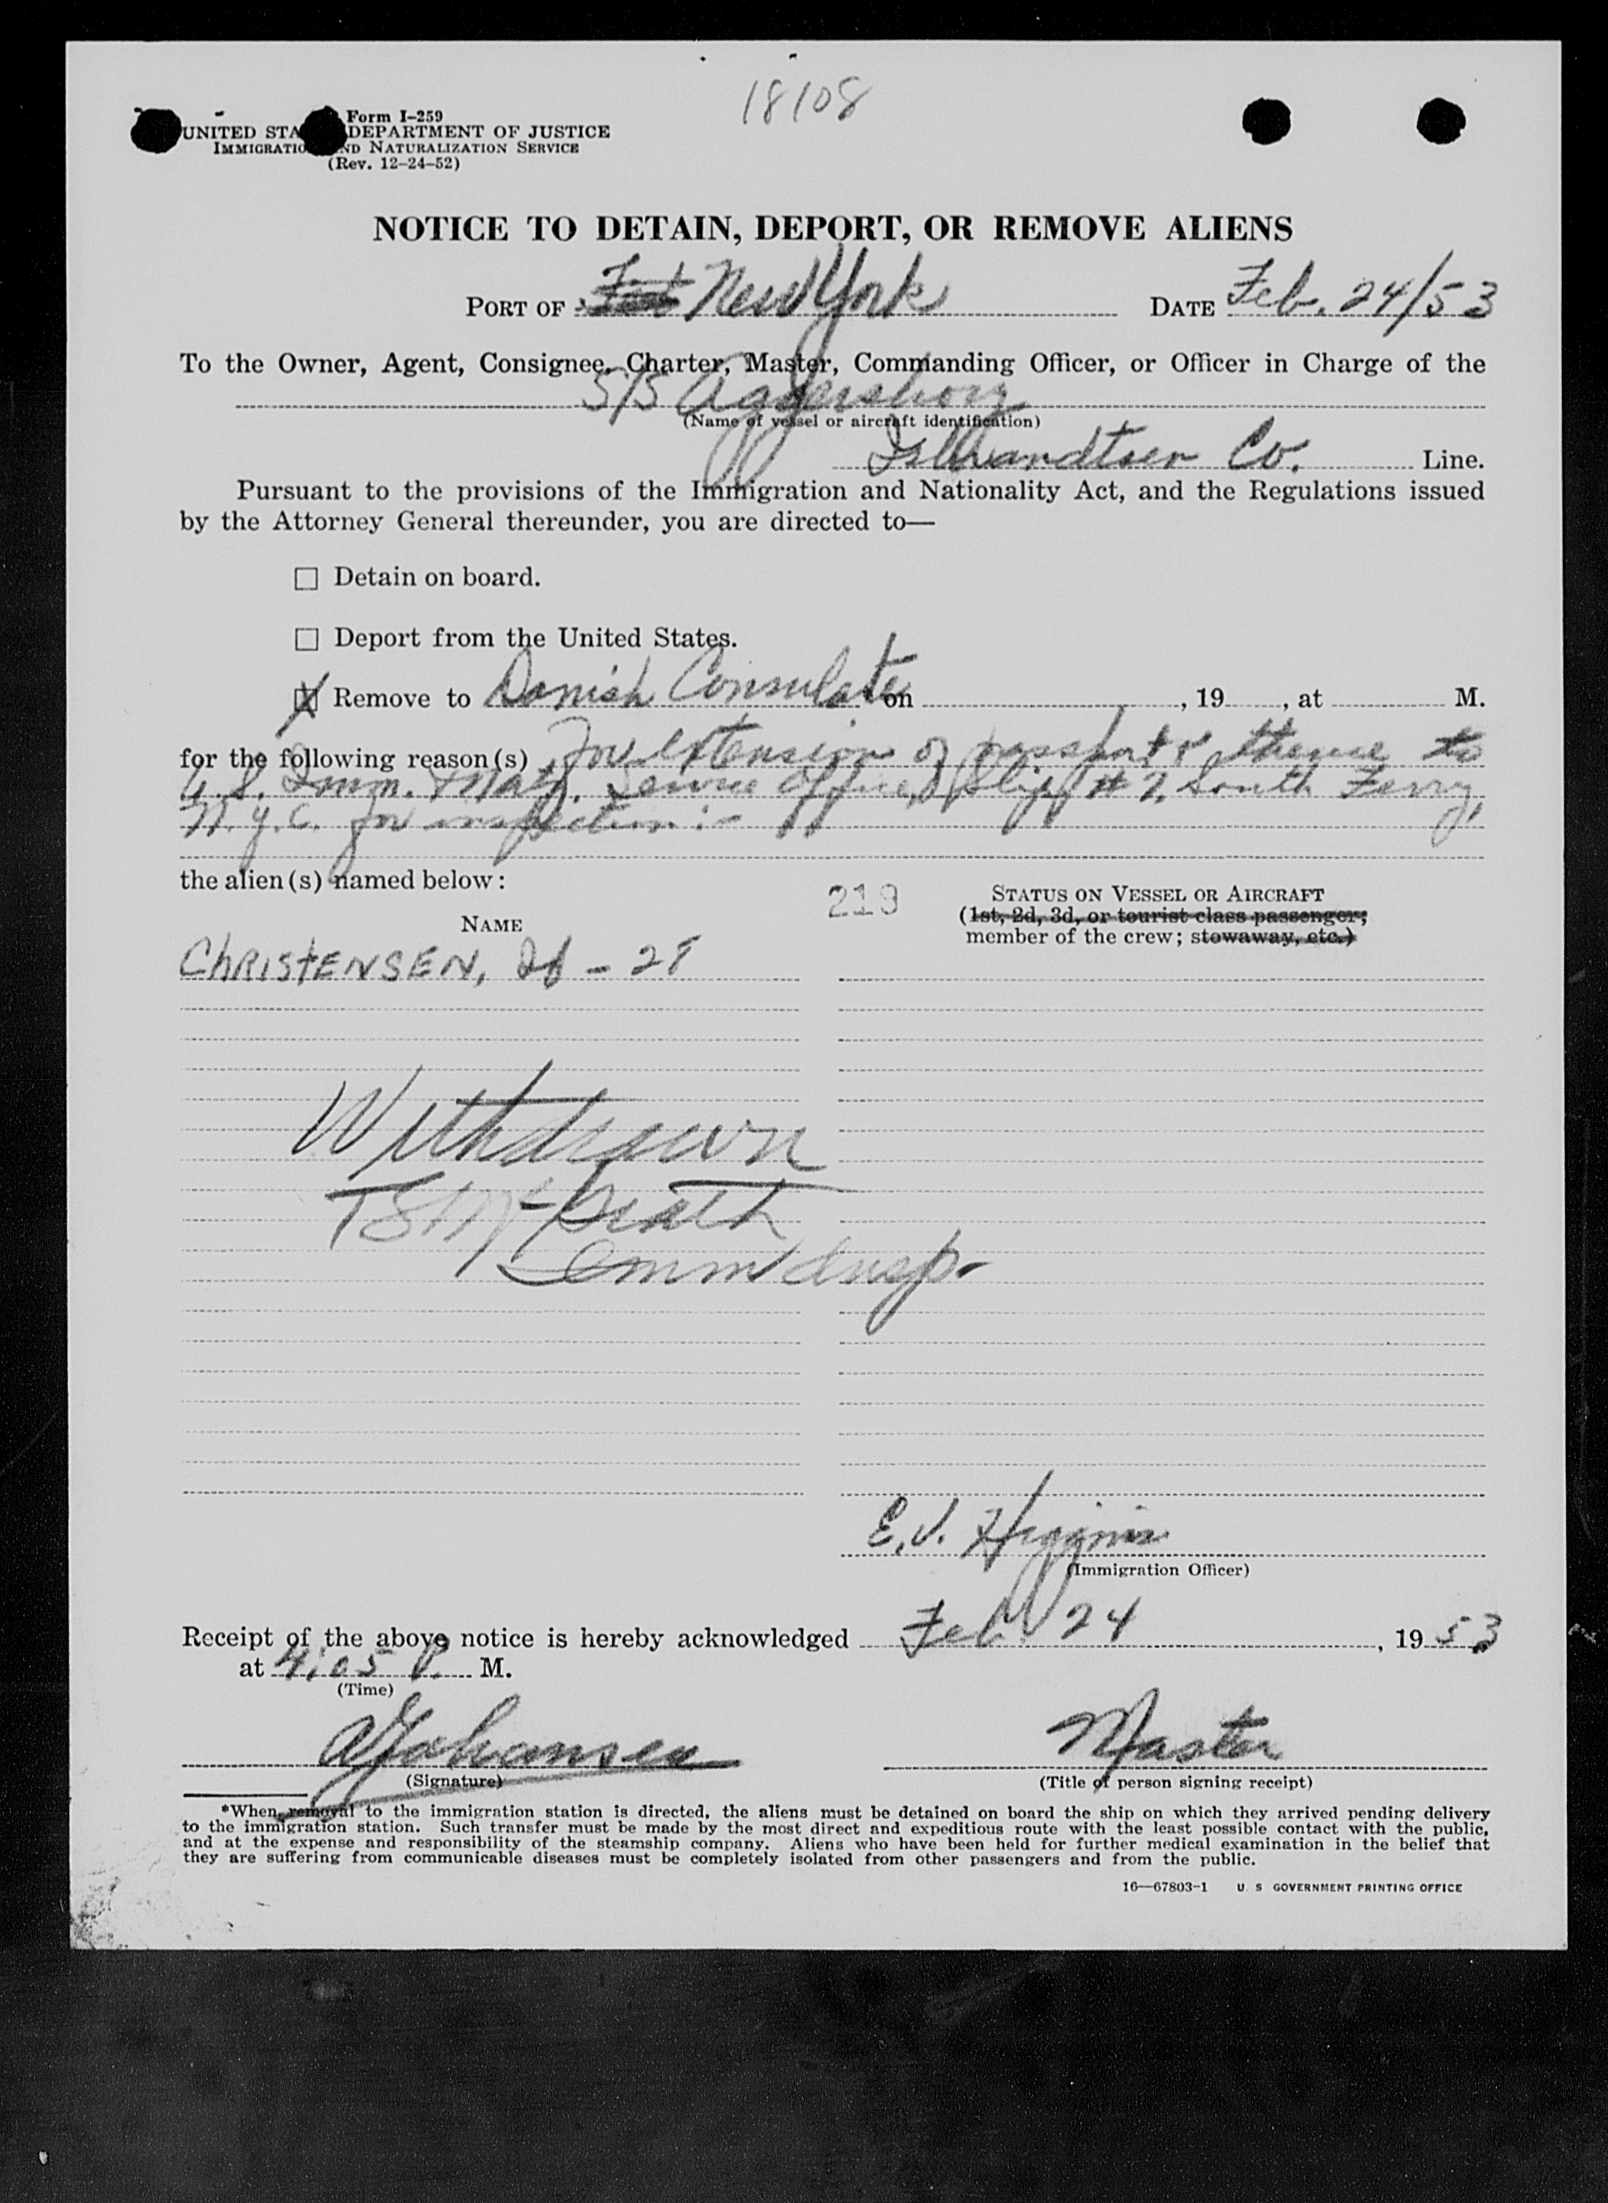 18108
Form I-259
UNITED STA DEPARTMENT OF JUSTICE
IMMIGRATIO ND NATURALIZATION SERVICE
(Rev. 12-24-52)
NOTICE TO DETAIN, DEPORT, OR REMOVE ALIENS
PORT OF New York DATE Feb. 24/53
To the Owner, Agent, Consignee, Charter, Master, Commanding Officer, or Officer in Charge of the
S/S Aggersborg
(Name of vessel or aircraft identification)
Isbrandtsen Co. Line.
Pursuant to the provisions of the Immigration and Nationality Act, and the Regulations issued
by the Attorney General thereunder, you are directed to—
☐ Detain on board.
☐ Deport from the United States.
☒ Remove to Danish Consulate on , 19 , at M.
for the following reason(s) for extension of passport & thence to
U.S. Imm. & Natz. Service Office, Slip # 7, South Ferry,
N.Y.C. for inspection:-
the alien(s) named below:
219
STATUS ON VESSEL OR AIRCRAFT
(1st, 2d, 3d, or tourist class passenger;
member of the crew; stowaway, etc.)
NAME
CHRISTENSEN, Ib - 28
Withdrawn
Imm Insp.
E.J. Higgins
(Immigration Officer)
Receipt of the above notice is hereby acknowledged Feb. 24, 1953
at 4:05 P. M.
(Time)
A Johansen
(Signature)
Master
(Title of person signing receipt)
*When removal to the immigration station is directed, the aliens must be detained on board the ship on which they arrived pending delivery
to the immigration station. Such transfer must be made by the most direct and expeditious route with the least possible contact with the public,
and at the expense and responsibility of the steamship company. Aliens who have been held for further medical examination in the belief that
they are suffering from communicable diseases must be completely isolated from other passengers and from the public.
16—67803-1 U. S. GOVERNMENT PRINTING OFFICE